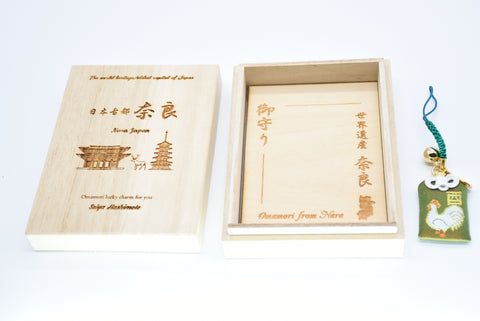 The world heritage/oldest capital of Japan
日本古都 奈良
Nara Japan
Omamori lucky charm for you
Seiya Hashimoto
御守り
世界遺産 奈良
Omamori from Nara
酉